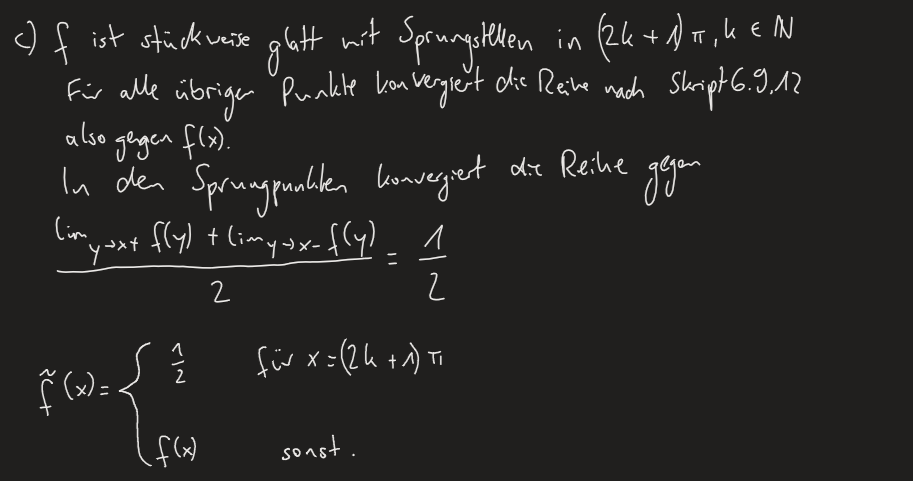 c) f ist stückweise glatt mit Sprungstellen in (2k + 1) π, k ∈ ℕ
Für alle übrigen Punkte konvergiert die Reihe nach Skript 6.9.12
also gegen f(x).
In den Sprungpunkten konvergiert die Reihe gegen
(lim_{y→x+} f(y) + lim_{y→x-} f(y)) / 2 = 1/2
f̃(x) = { 1/2 für x = (2k + 1) π
f(x) sonst.